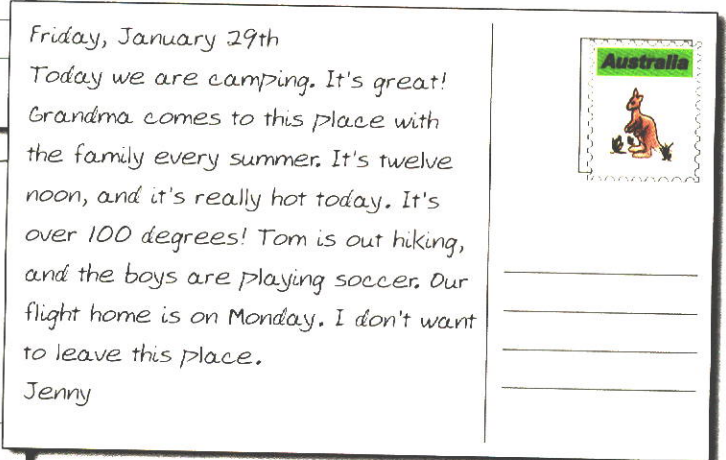 Friday, January 29th
Today we are camping. It's great!
Grandma comes to this place with
the family every summer. It's twelve
noon, and it's really hot today. It's
over 100 degrees! Tom is out hiking,
and the boys are playing soccer. Our
flight home is on Monday. I don't want
to leave this place.
Jenny
Australia